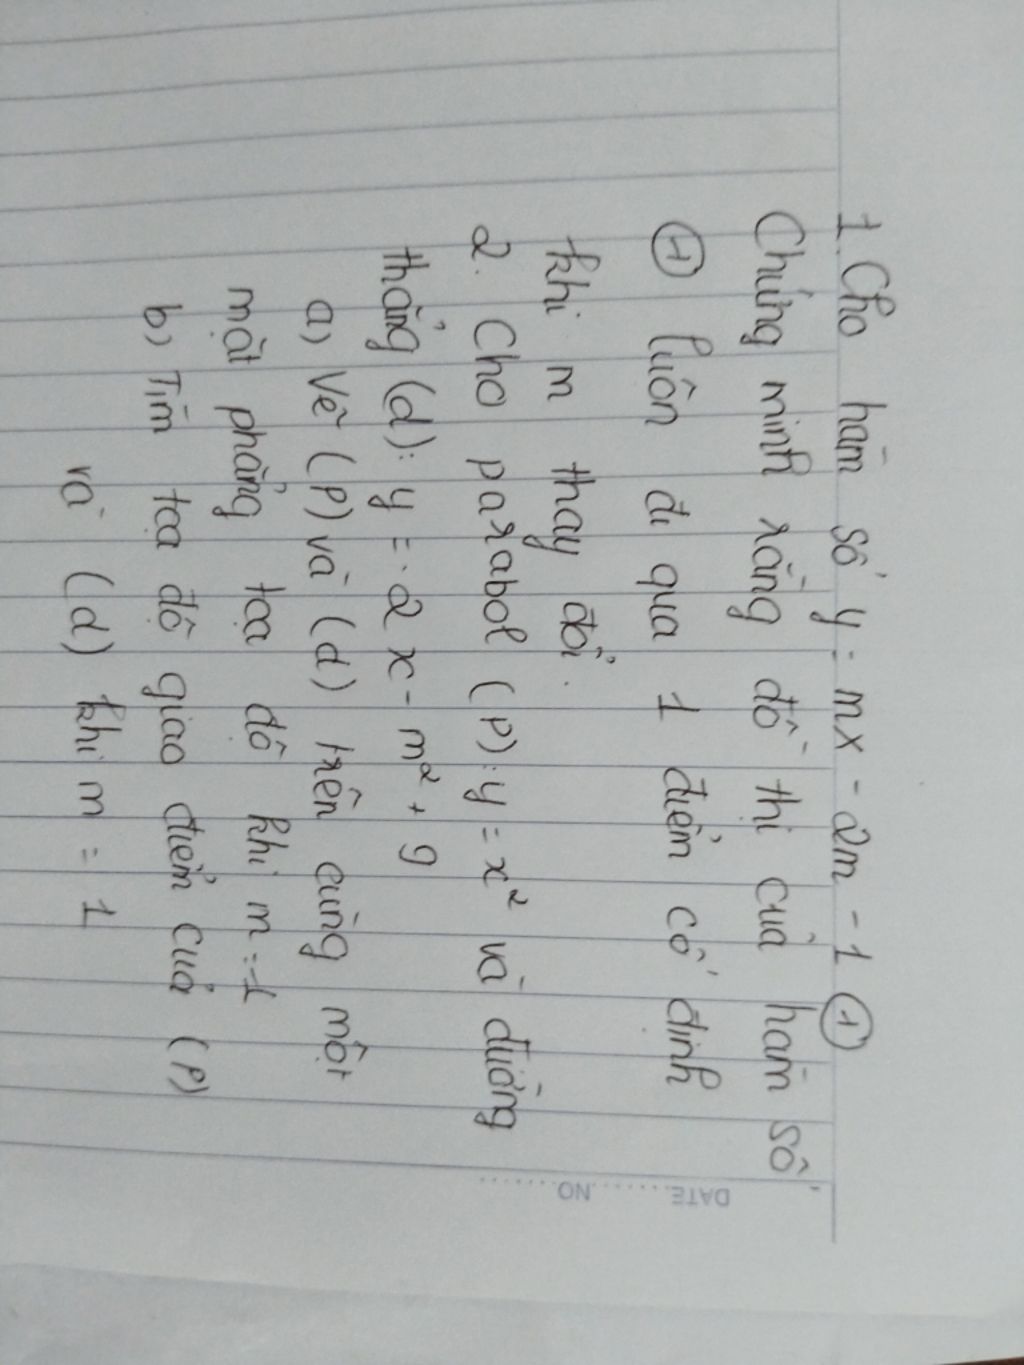 1. Cho hàm số y = mx - 2m - 1 (1)
Chứng minh rằng đồ thị của hàm số
(1) luôn đi qua 1 điểm cố định
khi m thay đổi.
2. Cho parabol (P): y = x² và đường
thẳng (d): y = 2x - m² + 9
a) Vẽ (P) và (d) trên cùng một
mặt phẳng tọa độ khi m = 1
b) Tìm tọa độ giao điểm của (P)
và (d) khi m = 1
DATE ....... NO .......